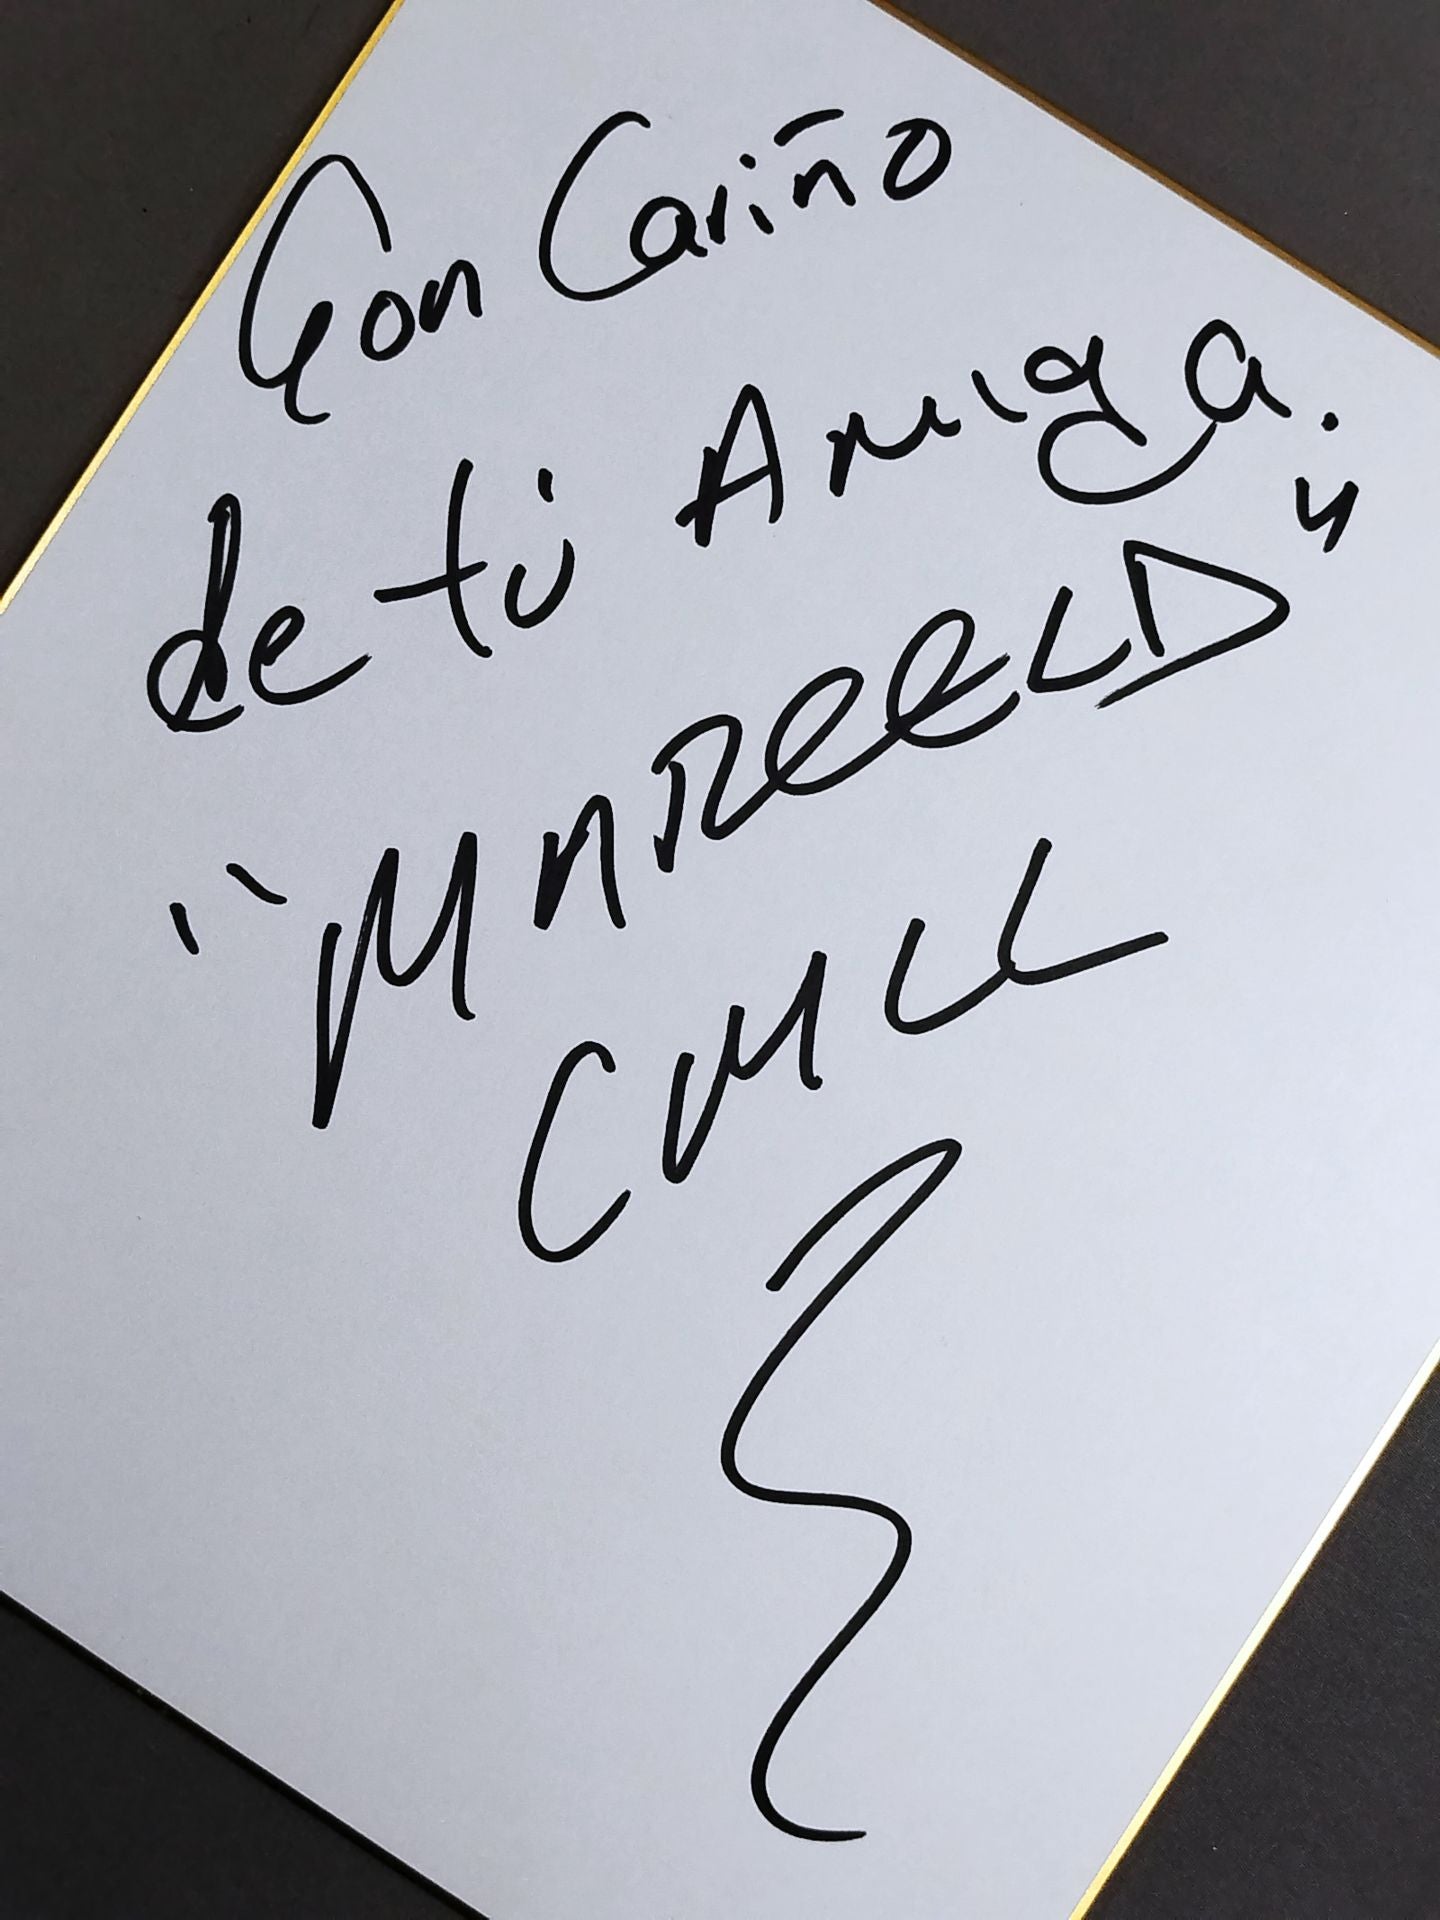 Con Cariño
de tú Amiga.
"MAREELD"
CMLL